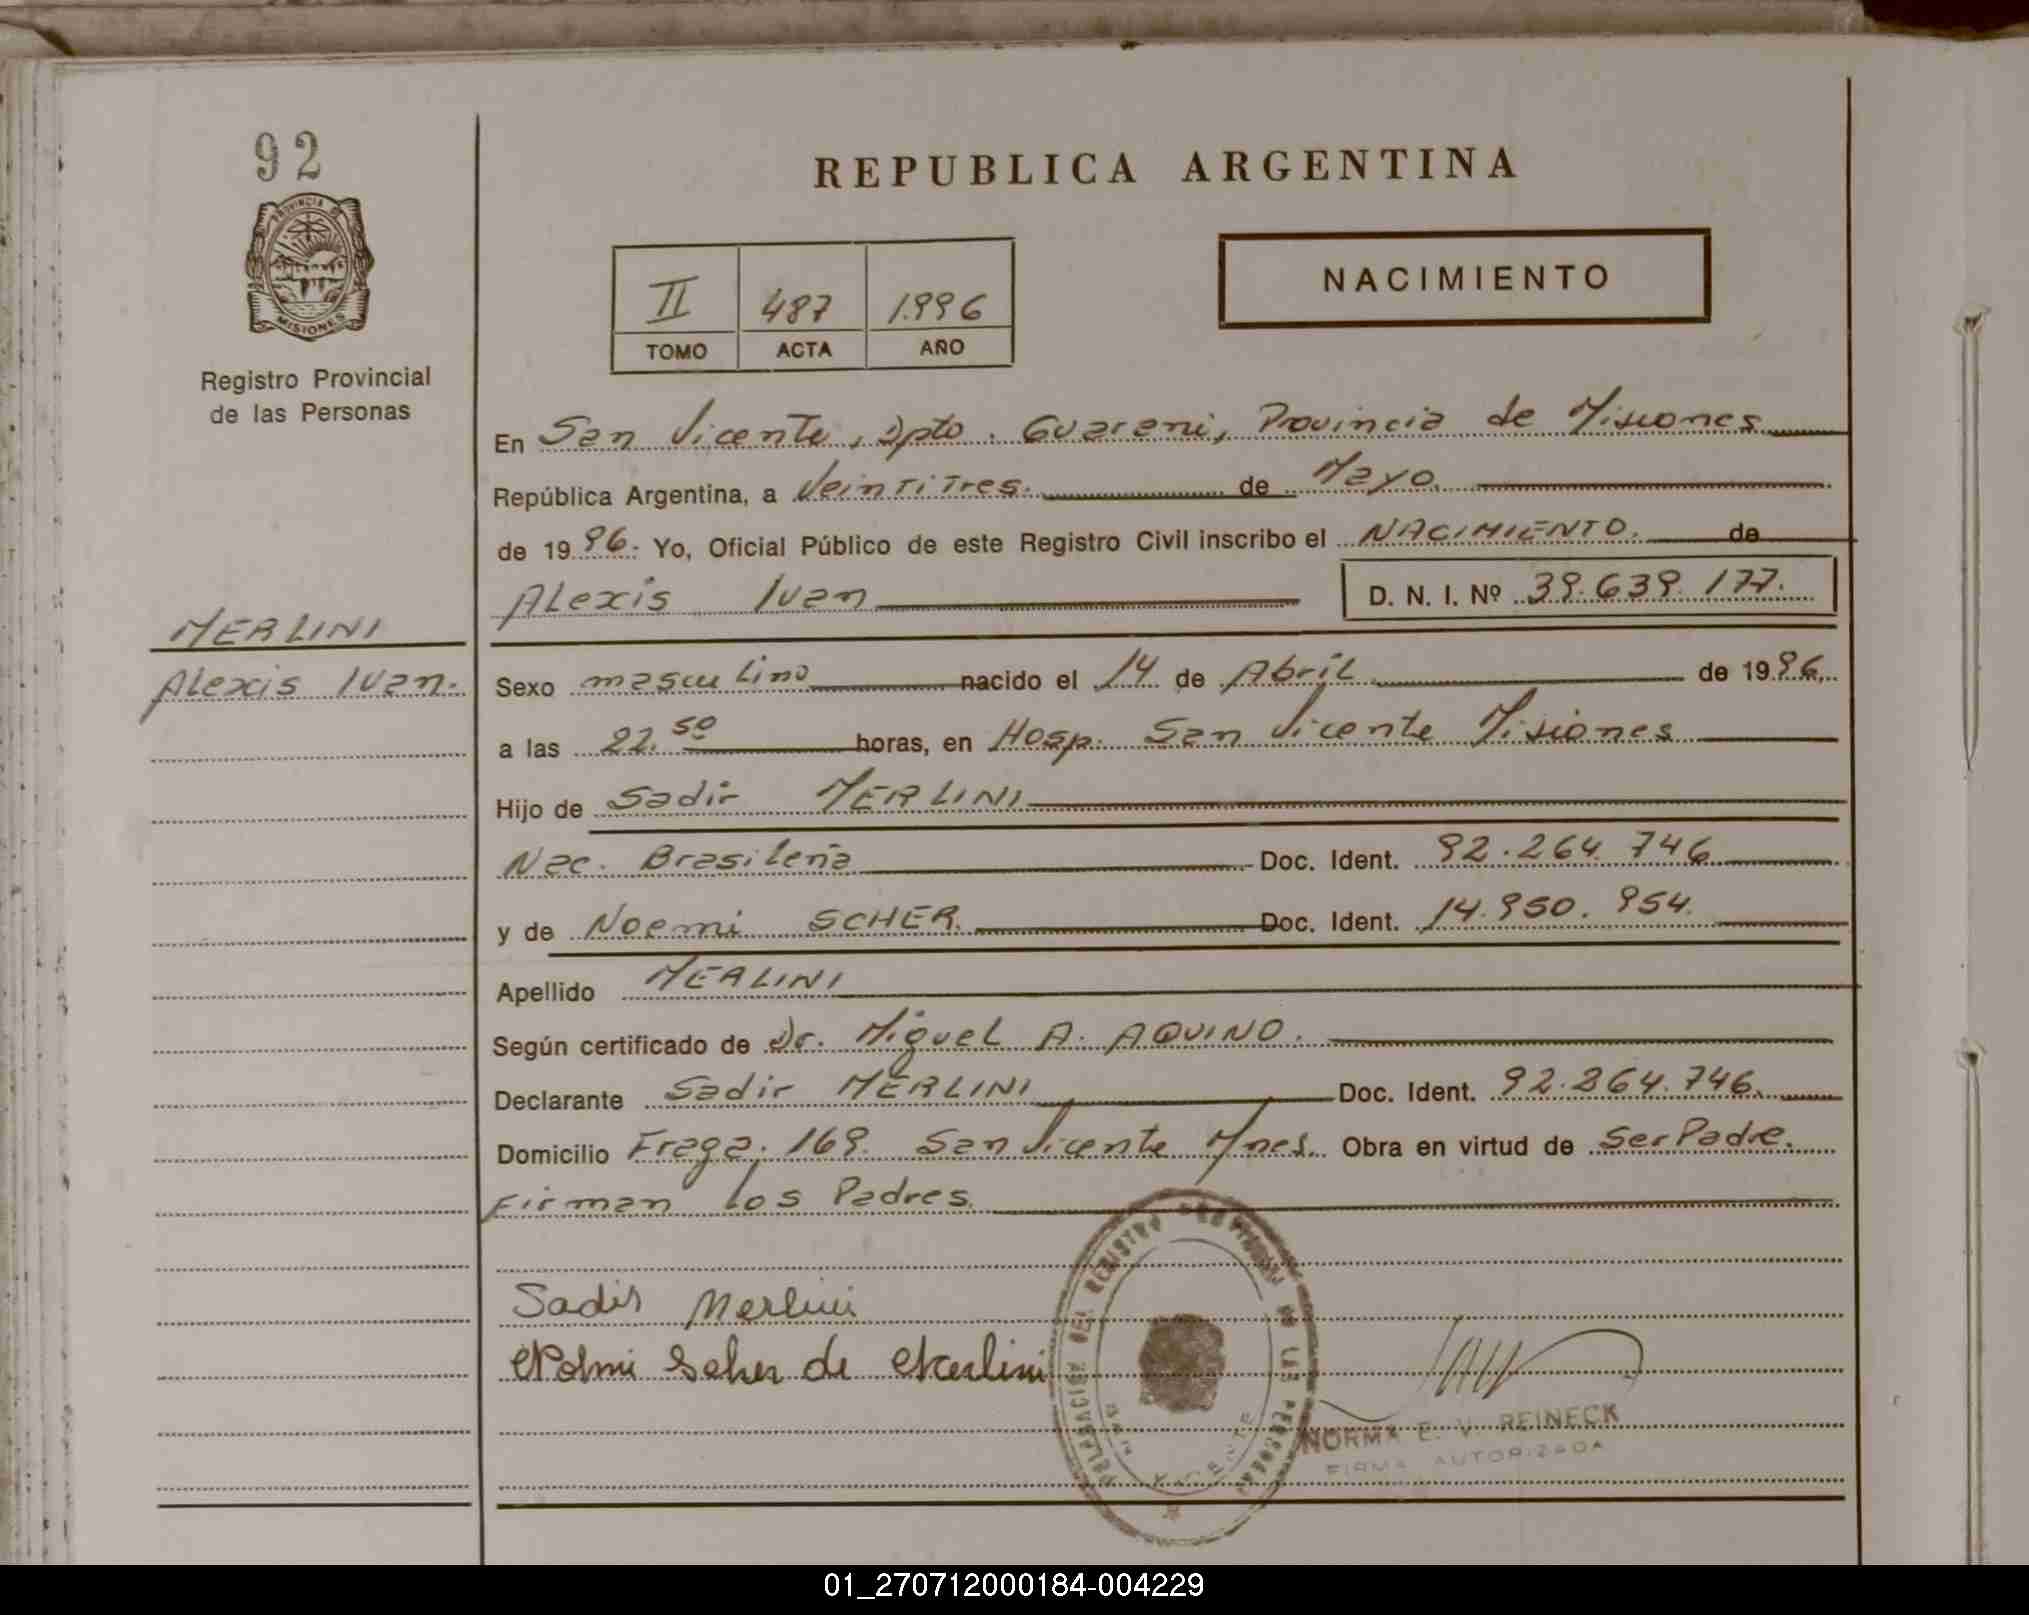 92
PROVINCIA DE
MISIONES
Registro Provincial
de las Personas
MERLINI
Alexis Ivan.
REPUBLICA ARGENTINA
II 487 1.996
TOMO ACTA AÑO
NACIMIENTO
En San Vicente, Dpto. Guarani, Provincia de Misiones
República Argentina, a Veintitres. de Mayo.
de 1996. Yo, Oficial Público de este Registro Civil inscribo el NACIMIENTO. de
Alexis Ivan D. N. I. Nº 39.639.177.
Sexo masculino nacido el 14 de Abril de 1996.
a las 22.50 horas, en Hosp. San Vicente Misiones
Hijo de Sadir MERLINI
Nac. Brasileña Doc. Ident. 92.264.746
y de Noemi SCHER. Doc. Ident. 14.950.954.
Apellido MERLINI
Según certificado de Dr. Miguel A. AQUINO.
Declarante Sadir MERLINI Doc. Ident. 92.264.746.
Domicilio Fraga. 169. San Vicente Mnes. Obra en virtud de Ser Padre.
Firman los Padres.
Sadir Merlini
Noemi Scher de Merlini
DELEGACION DEL REGISTRO PROVINCIAL DE LAS PERSONAS
VICENTE
NORMA E. V. REINECK
FIRMA AUTORIZADA
01_270712000184-004229